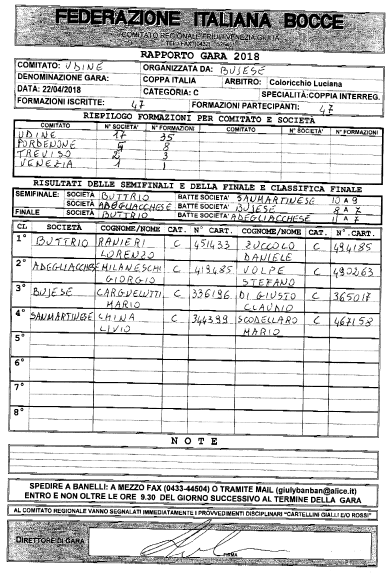 FEDERAZIONE ITALIANA BOCCE
COMITATO REGIONALE FRIULI VENEZIA GIULIA
RAPPORTO GARA 2018
COMITATO: UDINE ORGANIZZATA DA: BUJESE
DENOMINAZIONE GARA: COPPA ITALIA ARBITRO: Coloricchio Luciana
DATA: 22/04/2018 CATEGORIA: C SPECIALITÀ:COPPIA INTERREG.
FORMAZIONI ISCRITTE: 47 FORMAZIONI PARTECIPANTI: 47
RIEPILOGO FORMAZIONI PER COMITATO E SOCIETÀ
COMITATO N° SOCIETA' N° FORMAZIONI COMITATO N° SOCIETA' N° FORMAZIONI
UDINE 17 35
PORDENONE 4 8
TREVISO 2 3
VENEZIA 1 1
RISULTATI DELLE SEMIFINALI E DELLA FINALE E CLASSIFICA FINALE
SEMIFINALE: SOCIETÀ BUTTRIO BATTE SOCIETA' SANMARTINESE 10 A 9
SOCIETÀ ADEGLIACCHESE BATTE SOCIETA' BUJESE 8 A 7
FINALE SOCIETÀ BUTTRIO BATTE SOCIETA' ADEGLIACCHESE 11 A 7
CL SOCIETÀ COGNOME/NOME CAT. N° CART. COGNOME/NOME CAT. N°. CART.
1° BUTTRIO RANIERI C 451433 ZUCCOLO C 494185
LORENZO DANIELE
2° ADEGLIACCHESE MILANESCHI C 419485 VOLPE C 490263
GIORGIO STEFANO
3° BUJESE CARGNELUTTI C 336196 DI GIUSTO C 365017
MARIO CLAUDIO
4° SANMARTINESE CHINA C 344399 SCODELLARO C 467158
LIVIO MARIO
5°
6°
7°
8°
NOTE
SPEDIRE A BANELLI: A MEZZO FAX (0433-44504) O TRAMITE MAIL (giulybanban@alice.it)
ENTRO E NON OLTRE LE ORE 9.30 DEL GIORNO SUCCESSIVO AL TERMINE DELLA GARA
AL COMITATO REGIONALE VANNO SEGNALATI IMMEDIATAMENTE I PROVVEDIMENTI DISCIPLINARI "CARTELLINI GIALLI E/O ROSSI"
DIRETTORE DI GARA
FIRMA